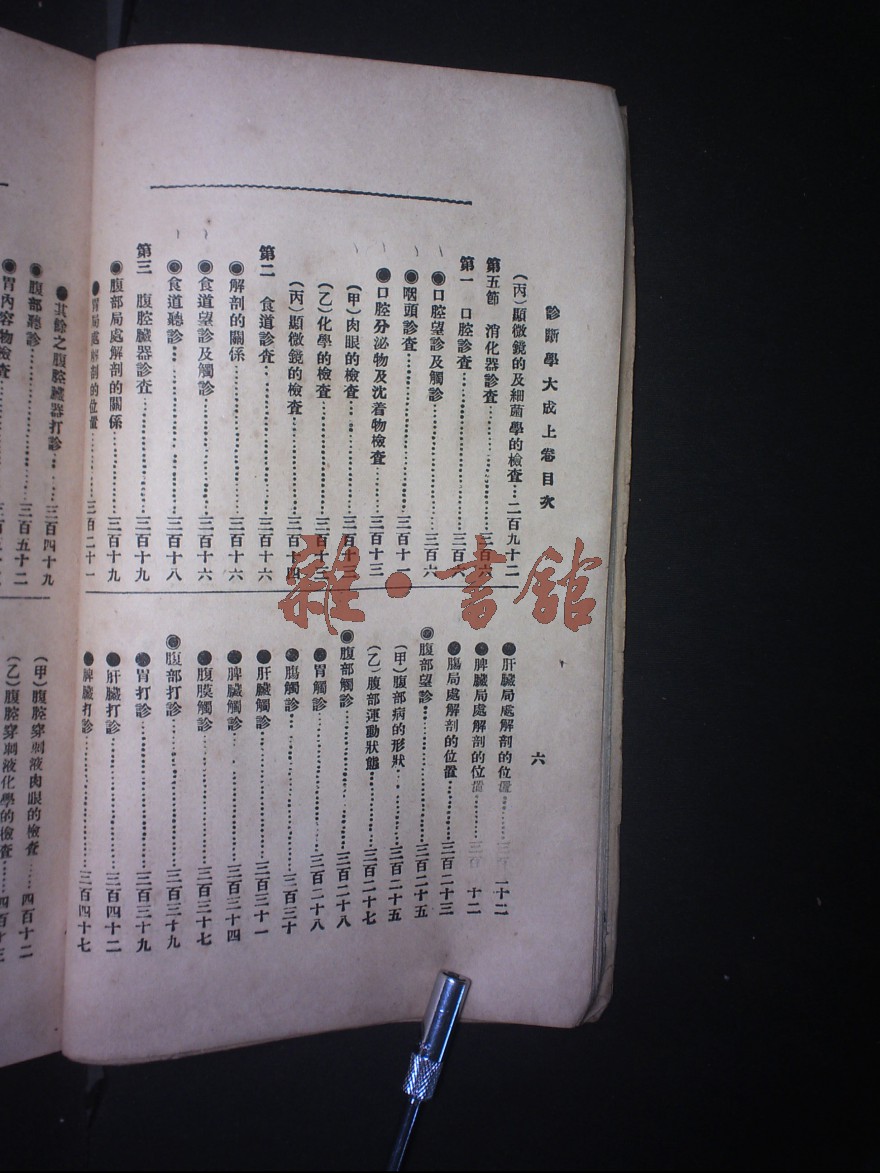 診斷學大成上卷目次
(丙)顯微鏡的及細菌學的檢查…二百九十二
第五節　消化器診查…三百六
第一　口腔診查…三百六
◉口腔望診及觸診…三百六
◉咽頭診查…三百十一
●口腔分泌物及沈着物檢査…三百十三
(甲)肉眼的檢查…三百十三
(乙)化學的檢查…三百十三
(丙)顯微鏡的檢査…三百十四
第二　食道診査…三百十六
◉解剖的關係…三百十六
◉食道望診及觸診…三百十六
◉食道聽診…三百十八
第三　腹腔臟器診査…三百十九
◉腹部局處解剖的關係…三百十九
●胃局處解剖的位置…三百二十一
六
●肝臟局處解剖的位置
●脾臟局處解剖的位置
●腸局處解剖的位置…三百二十三
◉腹部望診…三百二十五
(甲)腹部病的形狀…三百二十五
(乙)腹部運動狀態…三百二十七
◉腹部觸診…三百二十八
●胃觸診…三百二十八
●腸觸診…三百三十
●肝臟觸診…三百三十一
●脾臟觸診…三百三十四
●腹膜觸診…三百三十七
◉腹部打診…三百三十九
●胃打診…三百三十九
●肝臟打診…三百四十二
●脾臟打診…三百四十七
●其餘之腹腔臟器打診…三百四十九
◉腹部聽診…三百五十二
◉胃內容物檢查
(甲)腹腔穿刺液肉眼的檢查…四百十二
(乙)腹腔穿刺液化學的檢查…四百十三
雜·書館